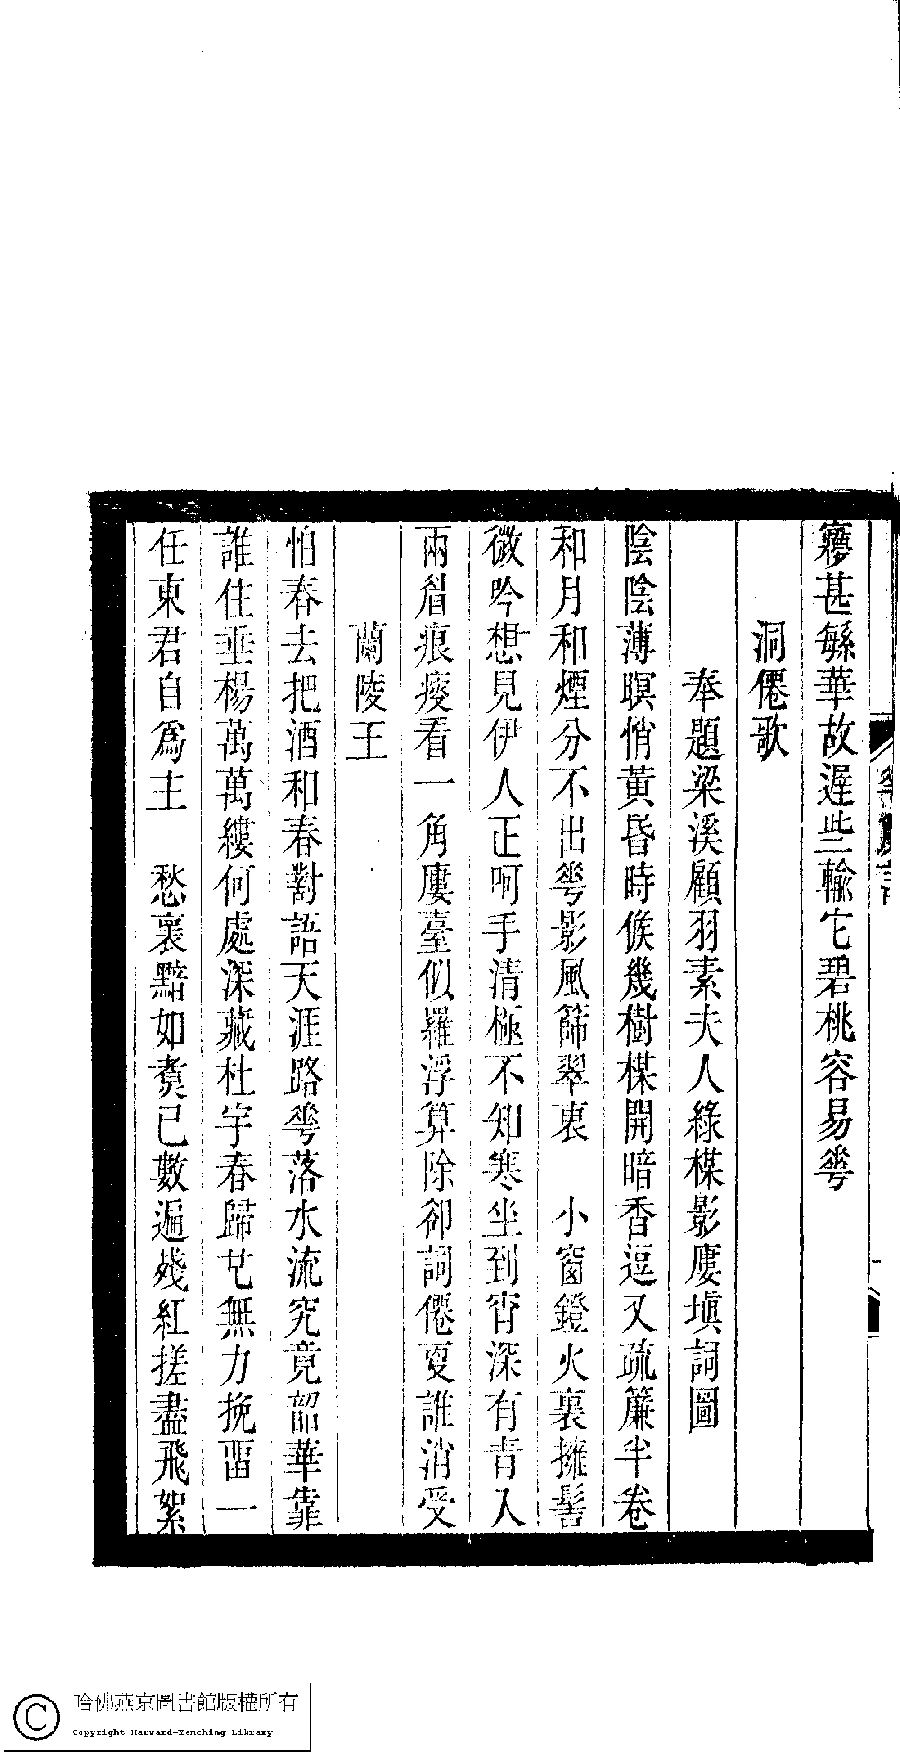 㝱甚緐華故遲些輸它碧桃容易𠌶
洞僊歌
奉題梁溪顧羽素夫人綠楳影廔塡詞圖
陰陰薄暝俏黃昏時候幾樹楳開暗香逗又疏簾半卷
和月和煙分不出𠌶影風篩翠褎　小窗鐙火裏擁髻
微吟想見伊人正呵手清極不知寒坐到宵深有青入
兩眉痕瘦看一角廔臺似羅浮算除卻詞僊更誰消受
蘭陵王
怕春去把酒和春對語天涯路𠌶落水流究竟韶華靠
誰住垂楊萬萬縷何處深藏杜宇春歸也無力挽畱一
任東君自爲主　愁裏黯如煑已數遍殘紅搓盡飛絮
哈佛燕京圖書館版權所有
Copyright Harvard-Yenching Library